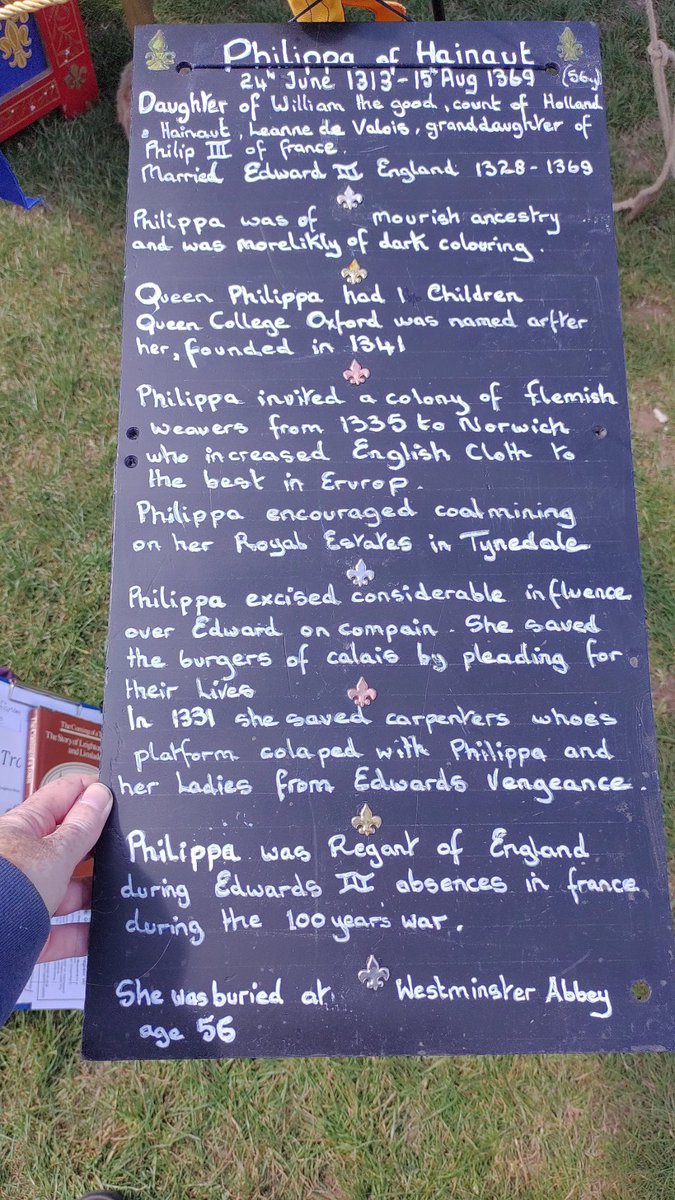 Philippa of Hainaut
24th June 1313 - 15th Aug 1369 (56y)
Daughter of William the good, count of Holland
& Hainaut, Leanne de Valois, granddaughter of
Philip III of france.
Married Edward III England 1328 - 1369
Philippa was of mourish ancestry
and was morelikly of dark colouring.
Queen Philippa had 1 Children
Queen College Oxford was named arfter
her, founded in 1341
Philippa invited a colony of flemish
weavers from 1335 to Norwich
who increased English Cloth to
the best in Erurop.
Philippa encouraged coalmining
on her Royal Estates in Tynedale
Philippa excised considerable influence
over Edward on compain. She saved
the burgers of calais by pleading for
their lives
In 1331 she saved carpenters whoes
platform colaped with Philippa and
her Ladies from Edwards Vengeance.
Philippa was Regant of England
during Edwards III absences in france
during the 100 years war.
She was buried at Westminster Abbey
age 56
The Coming of a
The Story of Leighton
and Linslade